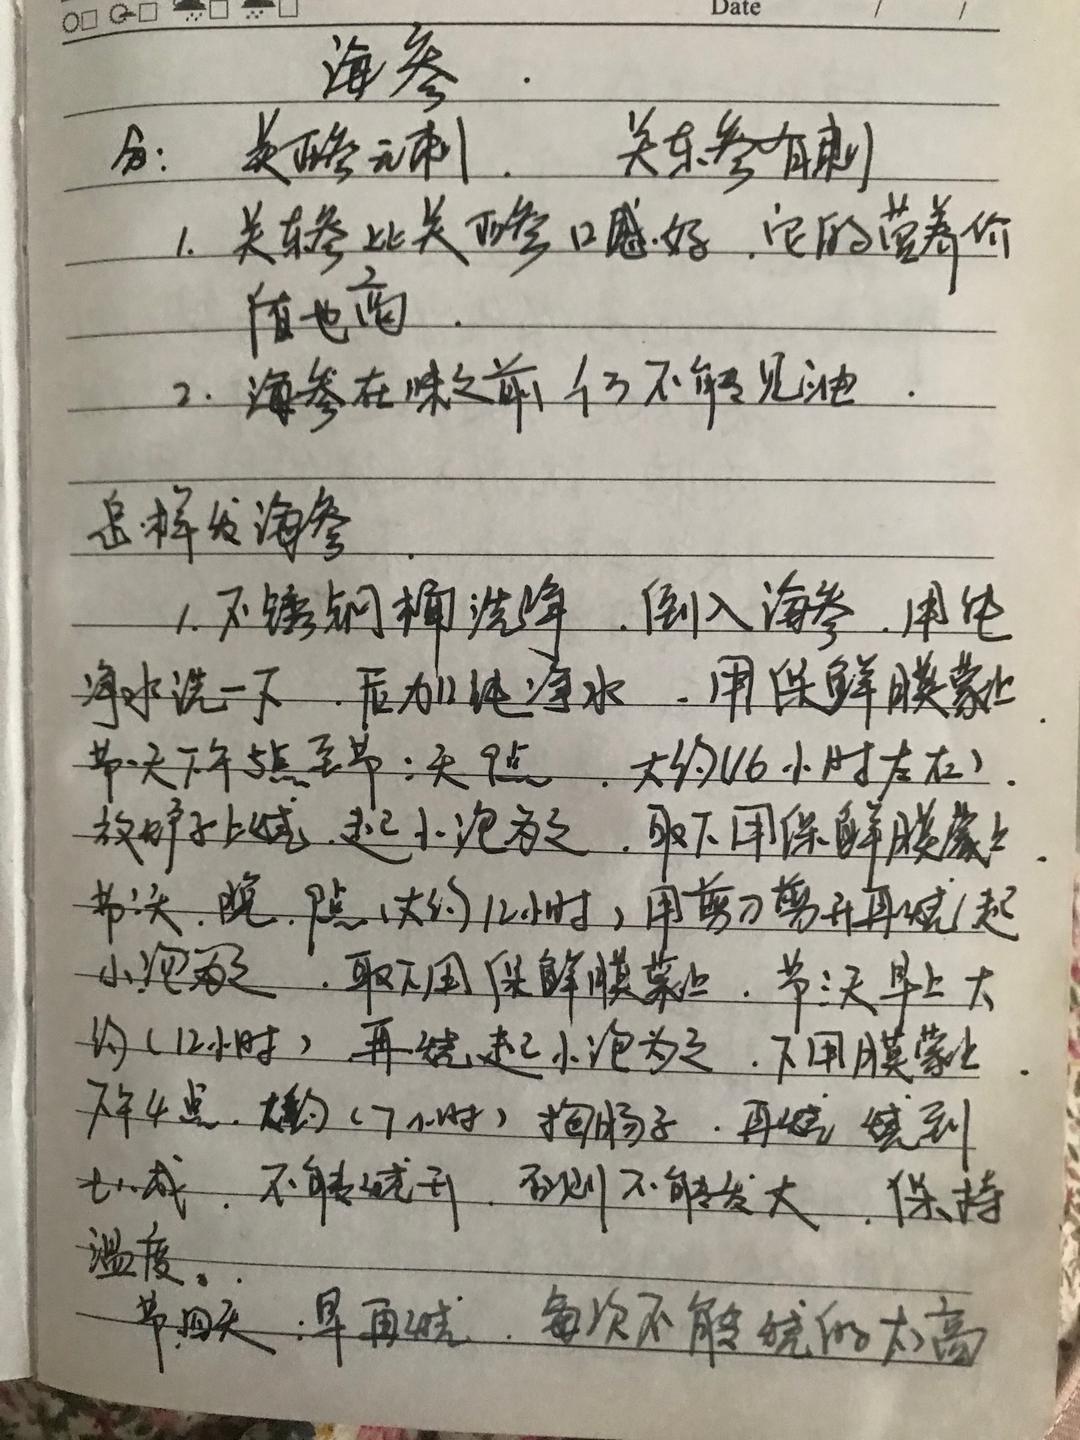 Date / /
海参.
分: 关西参无刺. 关东参有刺
1. 关东参比关西参口感好. 它的营养价
值也高.
2. 海参在味之前 不能见油.
怎样发海参.
1. 不锈钢桶洗净. 倒入海参. 用纯
净水洗一下. 后加纯净水. 用保鲜膜蒙上.
节一天下午5点至节二天9点. 大约(16小时左右).
放炉子上烧. 起小泡为之. 取下用保鲜膜蒙上.
节二天. 晚. 9点(大约12小时)用剪刀剪开再烧(起
小泡为之. 取下用保鲜膜蒙上. 节三天早上大
约(12小时) 再烧起小泡为之. 下用膜蒙上.
下午4点. 大约(7小时) 抱肠子. 再烧 烧到
七八成. 不能烧开. 否则不能发大. 保持
温度。.
节四天. 早再烧. 每次不能烧的太高